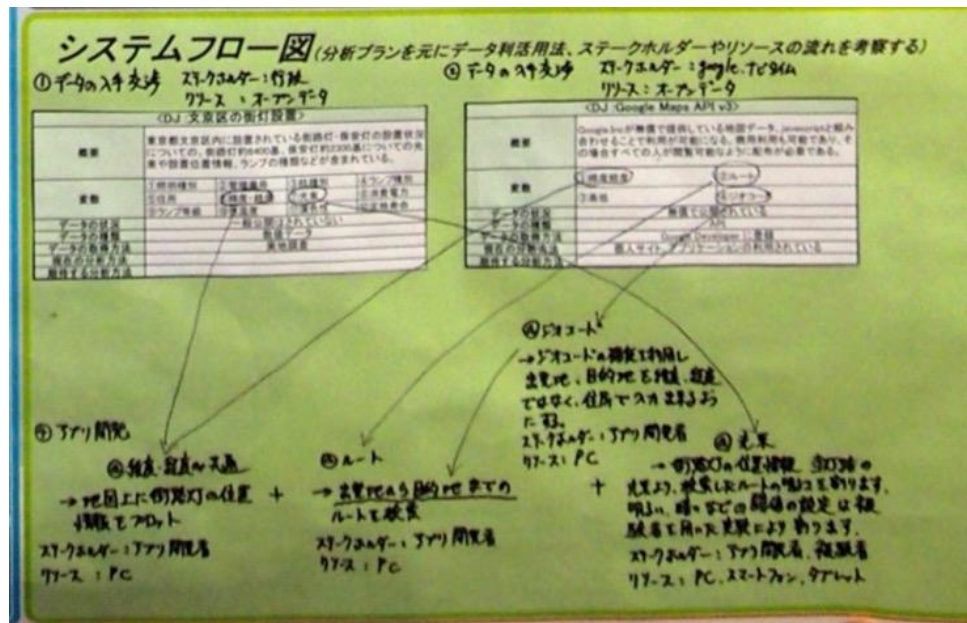 システムフロー図(分析プランを元にデータ利活用法、ステークホルダーやリソースの流れを考察する)
①データの入手交渉 ステークホルダー:行政
リソース:オープンデータ
<DJ:文京区の街灯設置>
概要
東京都文京区内に設置されている街路灯・保安灯の設置状況
についての、街路灯約6400基、保安灯約2300基についての光
束や設置位置情報、ランプの種類などが含まれている。
変数
④ランプ種別
⑤住所
⑥緯度・経度
⑦光束
⑧消費電力
⑨ランプ等級
データの状況 一般公開はされていない
データの種類 数値データ
データの取得方法 実地調査
現在の分析方法
期待する分析方法
②データの入手交渉 ステークホルダー:google、ナビタイム
リソース:オープンデータ
<DJ:Google Maps API v3>
概要
Google.Incが無償で提供している地図データ。javascriptと組み
合わせることで利用が可能になる。商用利用も可能であり、そ
の場合すべての人が閲覧可能なように配布が必要である。
変数
①緯度経度 ②ルート
③高低 ④ジオコード
データの状況 無償で公開されている
データの種類 API
データの取得方法 Google Developerに登録
現在の分析方法 個人サイト、アプリケーションの利用されている
期待する分析方法
ジオコード
→ジオコードの機能を利用し
出発地、目的地を緯度、経度
ではなく、住所で入力出来るよう
にする。
ステークホルダー:アプリ開発者
リソース:PC
アプリ開発
緯度・経度
→地図上に街路灯の位置
情報をプロット
ステークホルダー:アプリ開発者
リソース:PC
+
ルート
→出発地から目的地までの
ルートを検索
ステークホルダー:アプリ開発者
リソース:PC
+
光束
→街路灯の位置情報
光束より、検索したルートの明るさを割ります。
明るい、暗いなどの閾値の設定は被
験者を用いた実験により割ります。
ステークホルダー:アプリ開発者、被験者
リソース:PC、スマートフォン、タブレット